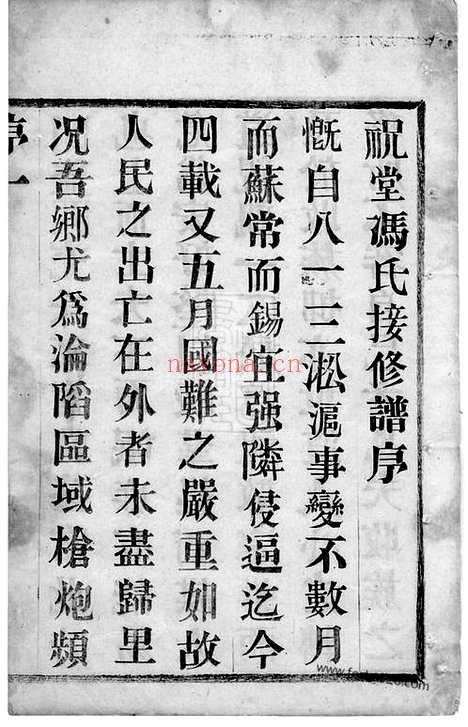 祝堂馮氏接修譜序
慨自八一三淞滬事變不數月
而蘇常而錫宜强隣侵逼迄今
四載又五月國難之嚴重如故
人民之出亡在外者未盡歸里
况吾鄉尤爲淪陷區域槍炮頻
序一
nayona.cn